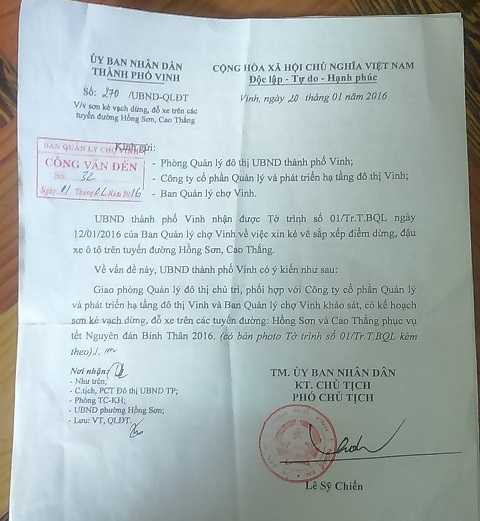 ỦY BAN NHÂN DÂN
THÀNH PHỐ VINH
CỘNG HÒA XÃ HỘI CHỦ NGHĨA VIỆT NAM
Độc lập - Tự do - Hạnh phúc
Số: 270 /UBND-QLĐT
V/v sơn kẻ vạch dừng, đỗ xe trên các
tuyến đường Hồng Sơn, Cao Thắng
Vinh, ngày 20 tháng 01 năm 2016
BAN QUẢN LÝ CHỢ VINH
CÔNG VĂN ĐẾN
Số: 32
Kính gửi:
- Phòng Quản lý đô thị UBND thành phố Vinh;
- Công ty cổ phần Quản lý và phát triển hạ tầng đô thị Vinh;
- Ban Quản lý chợ Vinh.
UBND thành phố Vinh nhận được Tờ trình số 01/Tr.T.BQL ngày
12/01/2016 của Ban Quản lý chợ Vinh về việc xin kẻ vẽ sắp xếp điểm dừng, đậu
xe ô tô trên tuyến đường Hồng Sơn, Cao Thắng.
Về vấn đề này, UBND thành phố Vinh có ý kiến như sau:
Giao phòng Quản lý đô thị chủ trì, phối hợp với Công ty cổ phần Quản lý
và phát triển hạ tầng đô thị Vinh và Ban Quản lý chợ Vinh khảo sát, có kế hoạch
sơn kẻ vạch dừng, đỗ xe trên các tuyến đường: Hồng Sơn và Cao Thắng phục vụ
tết Nguyên đán Bính Thân 2016. (có bản photo Tờ trình số 01/Tr.T.BQL kèm
theo)./.
Nơi nhận:
- Như trên;
- C.tịch, PCT Đô thị UBND TP;
- Phòng TC-KH;
- UBND phường Hồng Sơn;
- Lưu: VT, QLĐT.
TM. ỦY BAN NHÂN DÂN
KT. CHỦ TỊCH
PHÓ CHỦ TỊCH
Lê Sỹ Chiến